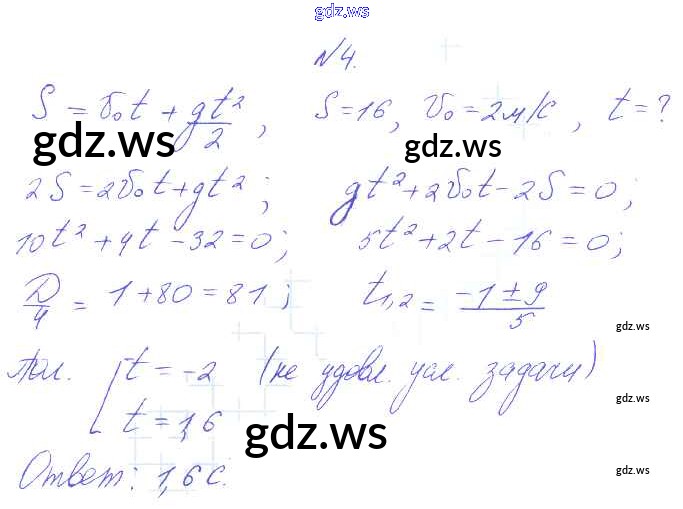 gdz.ws
№4.
S = v₀t + gt²/2, S=16, v₀=2м/с, t=?
gdz.ws gdz.ws
2S=2v₀t+gt²; gt²+2v₀t-2S=0;
10t²+4t-32=0; 5t²+2t-16=0;
D/4 = 1+80=81; t₁,₂ = (-1±9)/5
gdz.ws
t=-2 (не удовл. усл. задачи)
gdz.ws
t=1,6
gdz.ws
Ответ: 1,6 с.
gdz.ws